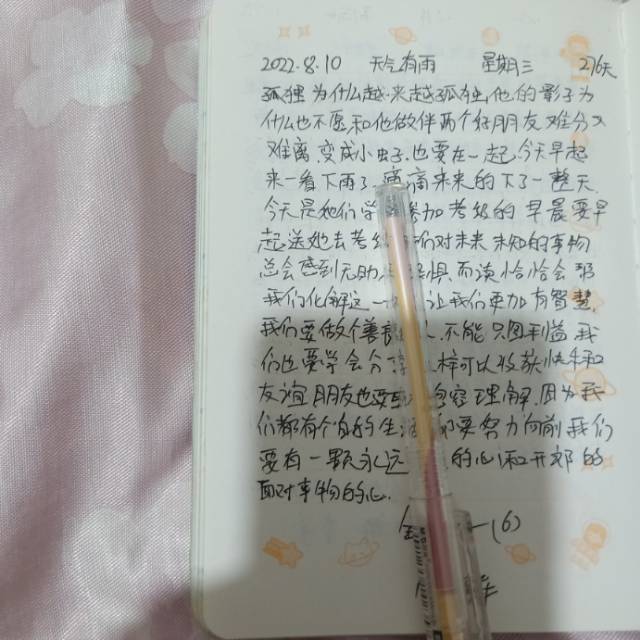 2022.8.10 天气有雨 星期三 276天
孤独为什么越来越孤独,他的影子为
什么也不愿和他做伴两个好朋友难分
难离,变成小虫子,也要在一起,今天早起
来一看下雨了 来来的下了一整天,
今天是她们学 参加考级的早晨要早
起送她去考级 们对未来未知的事物
总会感到无助 惧而读 恰恰会帮
我们化解这一 让我们更加有智慧,
我们要做个善良 人,不能只图利益,我
们也要学会分享 样可以收获快乐和
友谊,朋友也要 包容理解,因为我
们都有个自的生活 要努力向前,我们
要有一颗永远 的心和开朗的
面对事物的心.
(6)